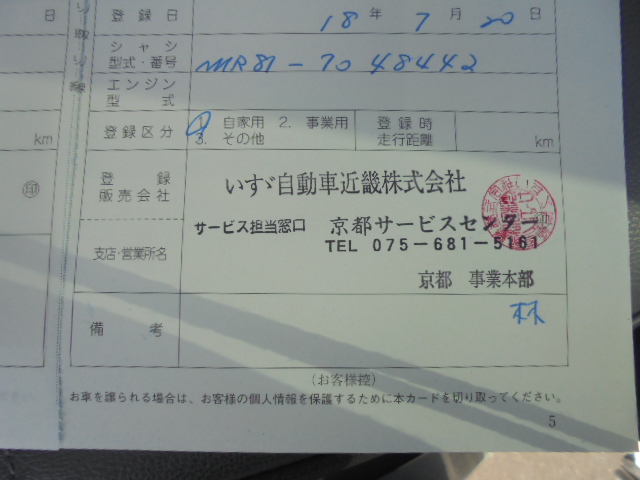 日
登録日 18年 7月 20日
シャシ
型式・番号 NMR81-7048442
エンジン
型式
km
登録区分 1. 自家用 2. 事業用
3. その他
登録時
走行距離 km
印
登録
販売会社 いすゞ自動車近畿株式会社
サービス担当窓口 京都サービスセンター
TEL 075-681-5161
支店・営業所名
京都 事業本部
林
備考
(お客様控)
お車を譲られる場合は、お客様の個人情報を保護するために本カードを切り取ってください。
5